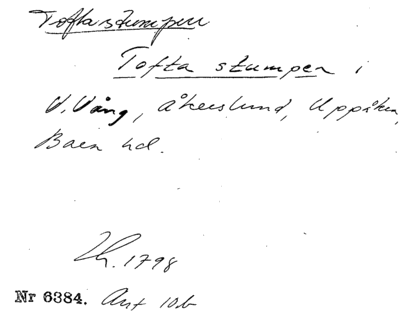 Toftastumpen
Tofta stumpen i
V. Vång, Åkerslund, Uppåkra,
Bara hd.
Lh. 1798
Nr 6384. Ant 10b